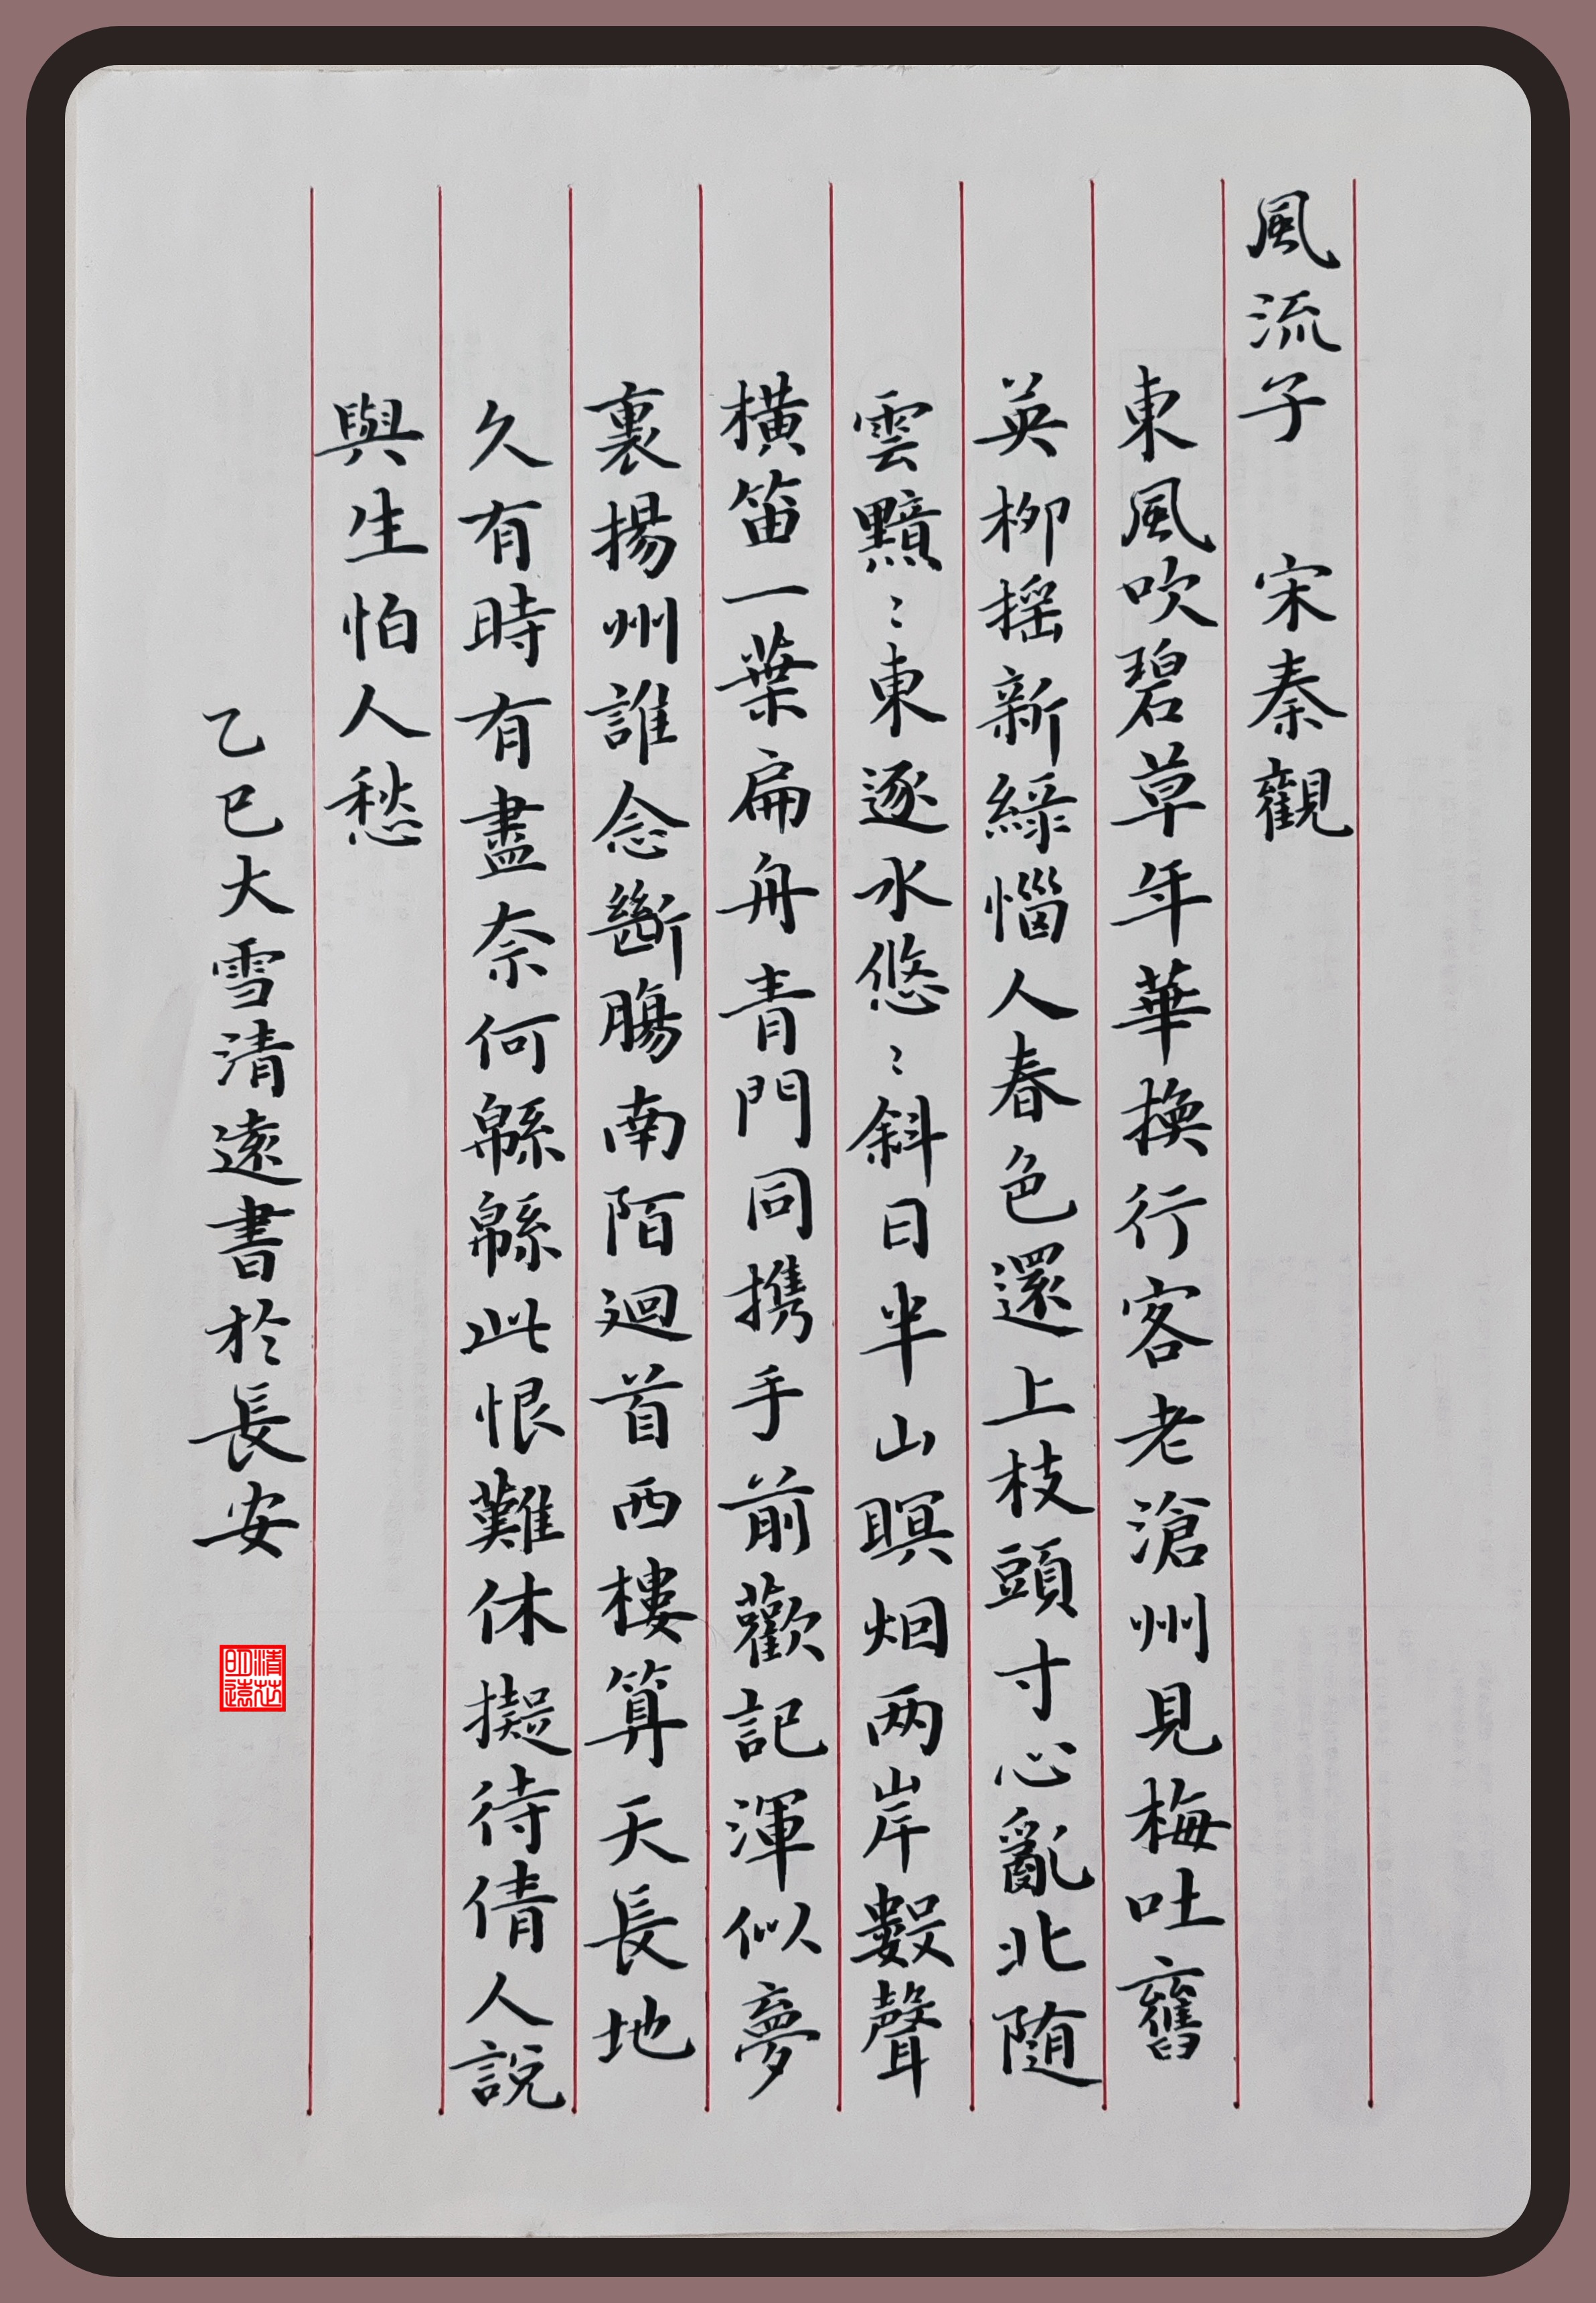 風流子　宋秦觀
東風吹碧草年華換行客老滄州見梅吐舊
英柳摇新綠惱人春色還上枝頭寸心亂北随
雲黯⺀東逐水悠⺀斜日半山暝烟两岸數聲
橫笛一葉扁舟青門同携手前歡記渾似夢
裏揚州誰念斷腸南陌廻首西樓算天長地
久有時有盡奈何緜緜此恨難休擬待倩人説
與生怕人愁
乙巳大雪清遠書於長安